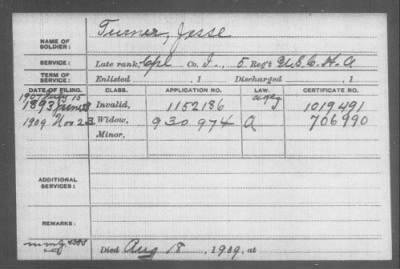 NAME OF SOLDIER: Turner, Jesse
SERVICE: Late rank, Cpl Co. I., 5 Reg't U.S.C.H.A
TERM OF SERVICE: Enlisted , 1 Discharged , 1
DATE OF FILING. CLASS. APPLICATION NO. LAW. CERTIFICATE NO.
1907 15
1893 Invalid, 1152186 1019491
1909 Nov 23 Widow, 930.974 A 706990
Minor,
ADDITIONAL SERVICES:
REMARKS:
Died Aug 18, 1909, at